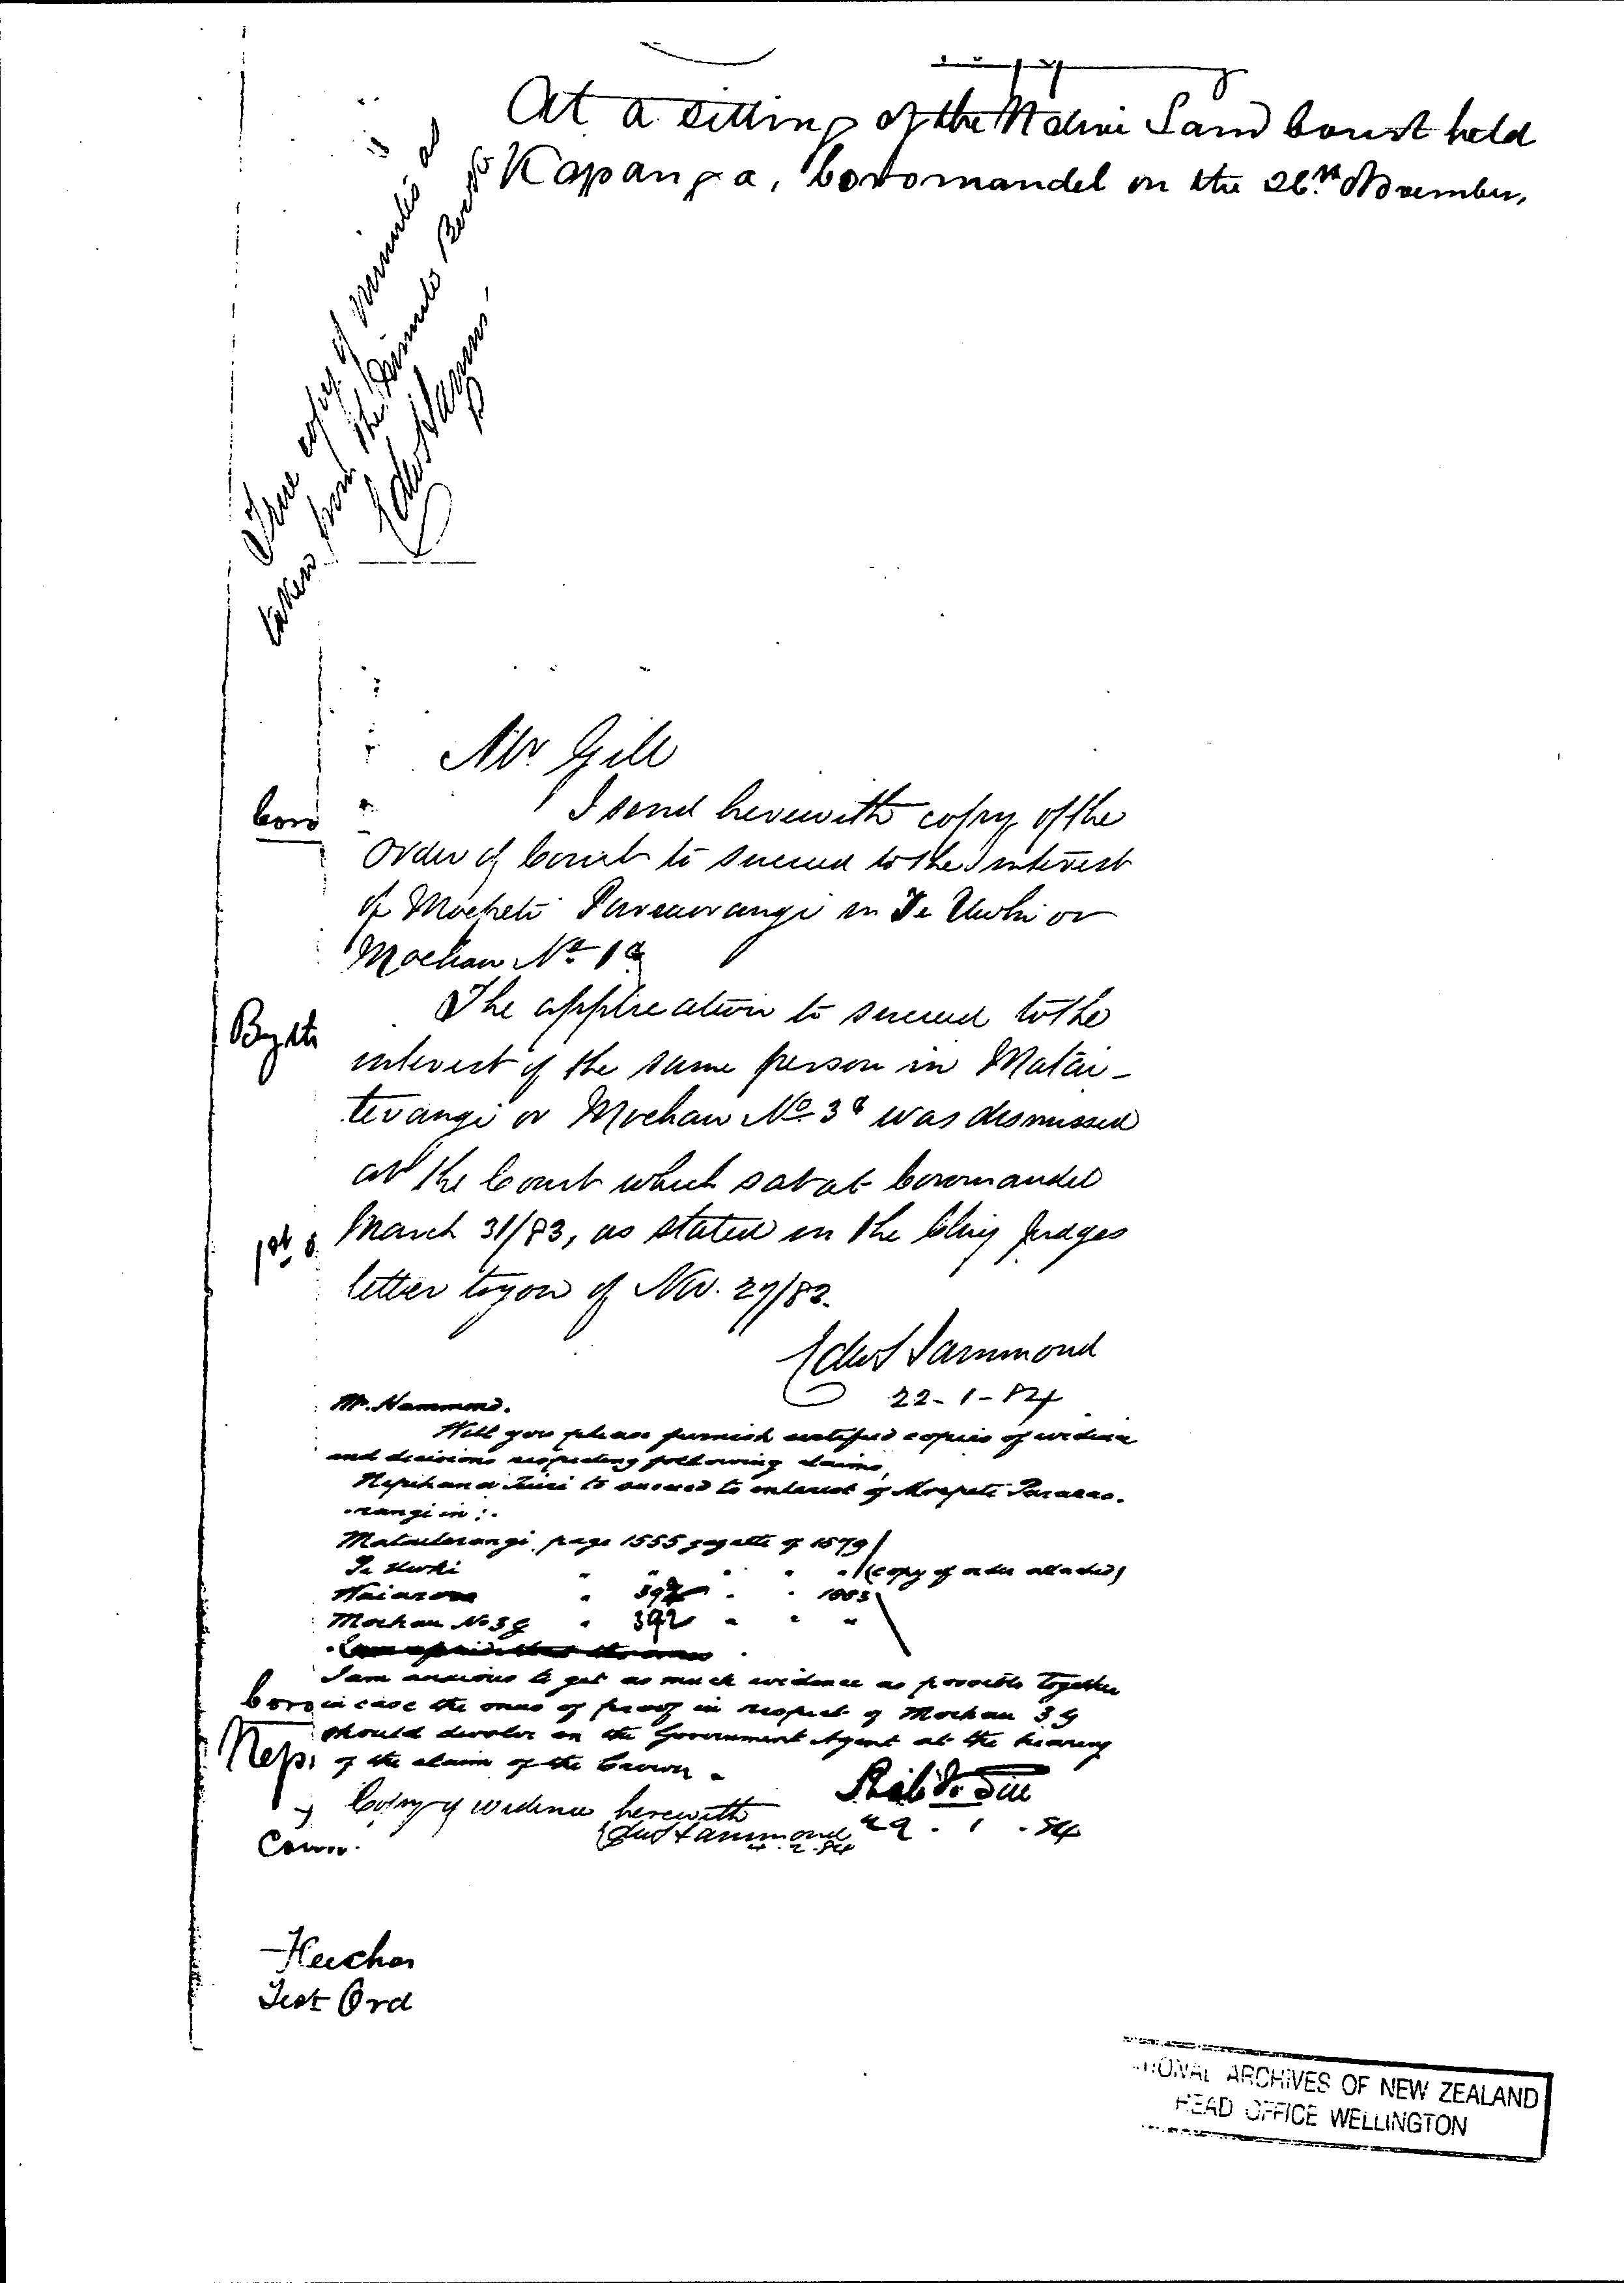 At a sitting of the Native Land Court held
Kapanga, Coromandel on the 26th November,
True copy of minutes as
taken from the Minute Book
Edw Hammond
Mr Gill
I send herewith copy of the
Order of Court to succeed to the interest
of Moepeti Parearorangi in Te Uwhi or
Moehau No 1
The application to succeed to the
interest of the same person in Matai-
terangi or Moehau No 3 was dismissed
at the Court which sat at Coromandel
March 31/83, as stated in the Chief Judges
letter to you of Nov. 27/83.
Edw Hammond
22-1-84
Coro
By the
1st
Mr. Hammond.
Will you please furnish certified copies of evidence
and decisions respecting following claims,
to succeed to interest of Moepeti Pararao-
rangi in :-
Mataiterangi page 1555 gazette of 1879
Te Uwhi " " " " " (copy of order attached)
" 392 " " 1883
Moehau No 3 G " 392 " " "
I am anxious to get as much evidence as possible together
in case the onus of proof in respect of Moehau 3 G
should devolve on the Government Agent at the hearing
of the claim of the Crown.
29. 1. 84
Copy of evidence herewith
Edw Hammond
4.2.84
Coro
Nepi
Court
Test Ord
NATIONAL ARCHIVES OF NEW ZEALAND
HEAD OFFICE WELLINGTON